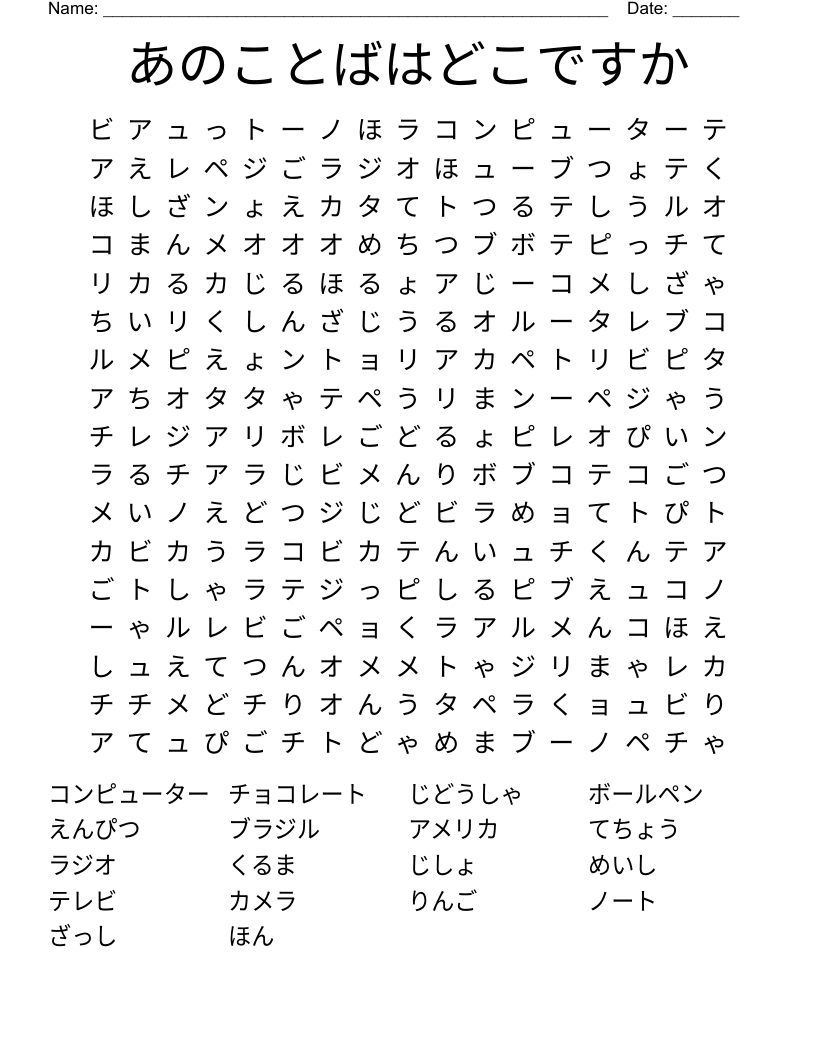 Name: _____________________________________________________ Date: _______
あのことばはどこですか
ビ ア ュ っ ト ー ノ ほ ラ コ ン ピ ュ ー タ ー テ
ア え レ ペ ジ ご ラ ジ オ ほ ュ ー ブ つ ょ テ く
ほ し ざ ン ょ え カ タ て ト つ る テ し う ル オ
コ ま ん メ オ オ オ め ち つ ブ ボ テ ピ っ チ て
リ カ る カ じ る ほ る ょ ア じ ー コ メ し ざ ゃ
ち い リ く し ん ざ じ う る オ ル ー タ レ ブ コ
ル メ ピ え ょ ン ト ョ リ ア カ ペ ト リ ビ ピ タ
ア ち オ タ タ ゃ テ ペ う リ ま ン ー ペ ジ ゃ う
チ レ ジ ア リ ボ レ ご ど る ょ ピ レ オ ぴ い ン
ラ る チ ア ラ じ ビ メ ん り ボ ブ コ テ コ ご つ
メ い ノ え ど つ ジ じ ど ビ ラ め ョ て ト ぴ ト
カ ビ カ う ラ コ ビ カ テ ん い ュ チ く ん テ ア
ご ト し ゃ ラ テ ジ っ ピ し る ピ ブ え ュ コ ノ
ー ゃ ル レ ビ ご ペ ョ く ラ ア ル メ ん コ ほ え
し ュ え て つ ん オ メ メ ト ゃ ジ リ ま ゃ レ カ
チ チ メ ど チ り オ ん う タ ペ ラ く ョ ュ ビ り
ア て ュ ぴ ご チ ト ど ゃ め ま ブ ー ノ ペ チ ゃ
コンピューター チョコレート じどうしゃ ボールペン
えんぴつ ブラジル アメリカ てちょう
ラジオ くるま じしょ めいし
テレビ カメラ りんご ノート
ざっし ほん